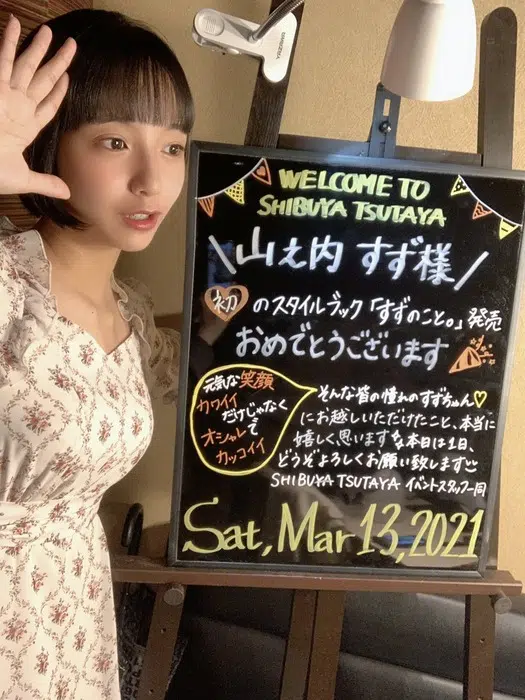 WELCOME TO
SHIBUYA TSUTAYA
\山之内 すず様/
初 のスタイルブック「すずのこと。」発売
おめでとうございます
元気な笑顔
カワイイ
だけじゃなく
オシャレで
カッコイイ
そんな皆の憧れのすずちゃん♡
にお越しいただけたこと、本当に
嬉しく思います。本日は1日、
どうぞよろしくお願い致します
SHIBUYA TSUTAYA イベントスタッフ一同
Sat, Mar 13, 2021